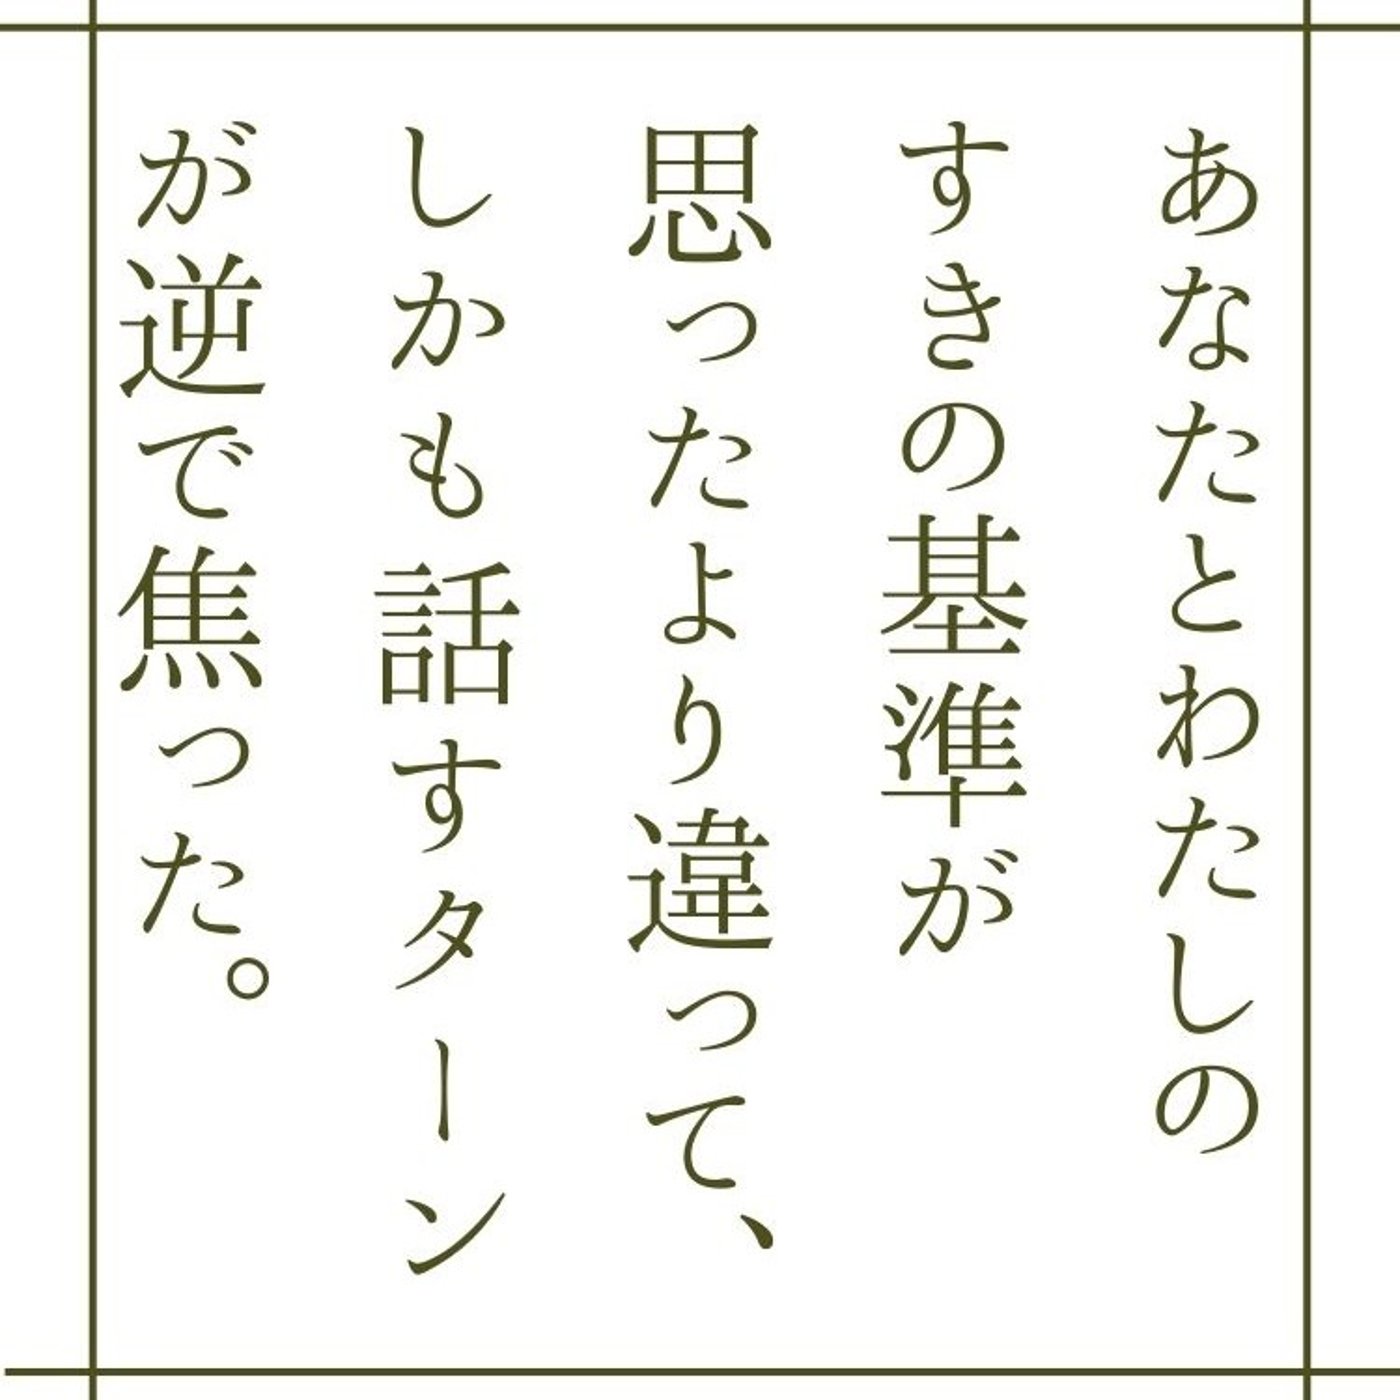 あなたとわたしの
すきの基準が
思ったより違って、
しかも話すターン
が逆で焦った。